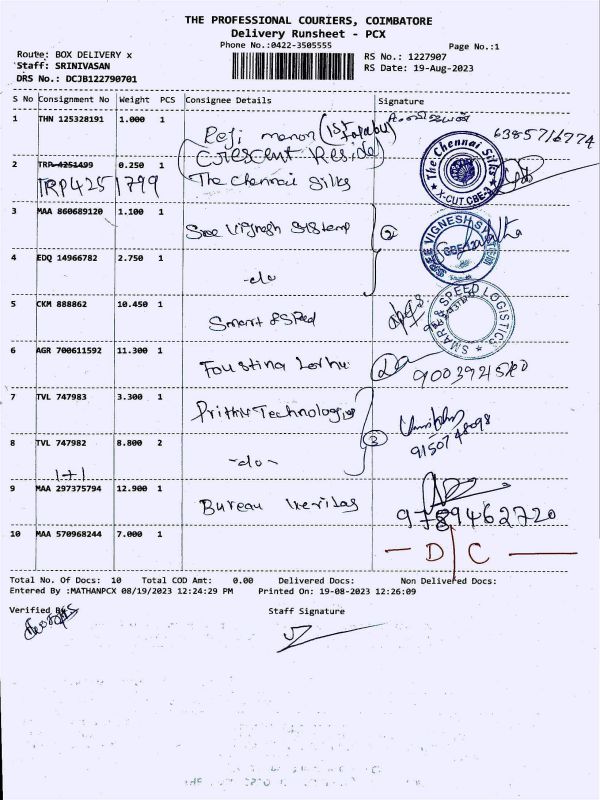 THE PROFESSIONAL COURIERS, COIMBATORE
Delivery Runsheet - PCX
Phone No.:0422-3505555
Page No.:1
Route: BOX DELIVERY x
Staff: SRINIVASAN
DRS No.: DCJB122790701
RS No.: 1227907
RS Date: 19-Aug-2023
S No Consignment No Weight PCS Consignee Details Signature
1 THN 125328191 1.000 1 Reji menon (1st
6385716774
Crescent Reside
2 TRP 4251499 0.250 1 The Chennai Silks
TRP4251799
The Chennai Silks
X-CUT, CBE-3
3 MAA 860689120 1.100 1 Sree Vignesh System
2
SREE VIGNESH
4 EDQ 14966782 2.750 1 -do-
5 CKM 888862 10.450 1 Smart & Speed
SMART & SPEED LOGISTICS
6 AGR 700611592 11.300 1 Faustina
7 TVL 747983 3.300 1 Prithvi Technologies
8 TVL 747982 8.800 2 -do-
3
9150748098
1+1
9 MAA 297375794 12.900 1 Bureau Veritas
9789462720
10 MAA 570968244 7.000 1
D/C
Total No. Of Docs: 10 Total COD Amt: 0.00 Delivered Docs: Non Delivered Docs:
Entered By :MATHANPCX 08/19/2023 12:24:29 PM Printed On: 19-08-2023 12:26:09
Verified By Staff Signature